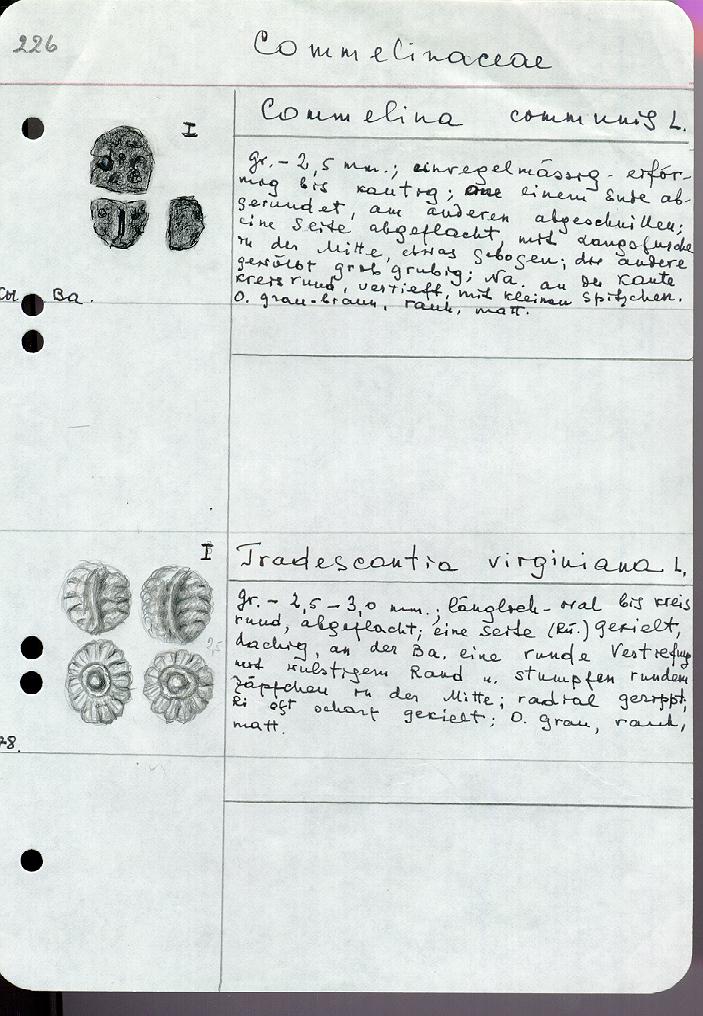 226
Commelinaceae
I
Commelina communis L.
gr. - 2,5 mm.; unregelmässig - eiför-
mig bis kantig; an einem Ende ab-
gerundet, am anderen abgeschnitten;
eine Seite abgeflacht mit Längsfurche
in der Mitte, etwas gebogen; die andere
gewölbt grob grubig; Na. an der Kante
kreisrund, vertieft, mit kleinem Spitzchen.
O. grau-braun, rauh, matt.
Col. Ba.
I
Tradescantia virginiana L.
gr. - 2,5 - 3,0 mm.; länglich-oval bis kreis
rund, abgeflacht; eine Seite (Rü.) gekielt,
dachig, an der Ba. eine runde Vertiefung
mit wulstigem Rand u. stumpfen rundem
Zäpfchen in der Mitte; radial gerippt,
Ri oft scharf gekielt; O. grau, rauh,
matt.
2,5
78.